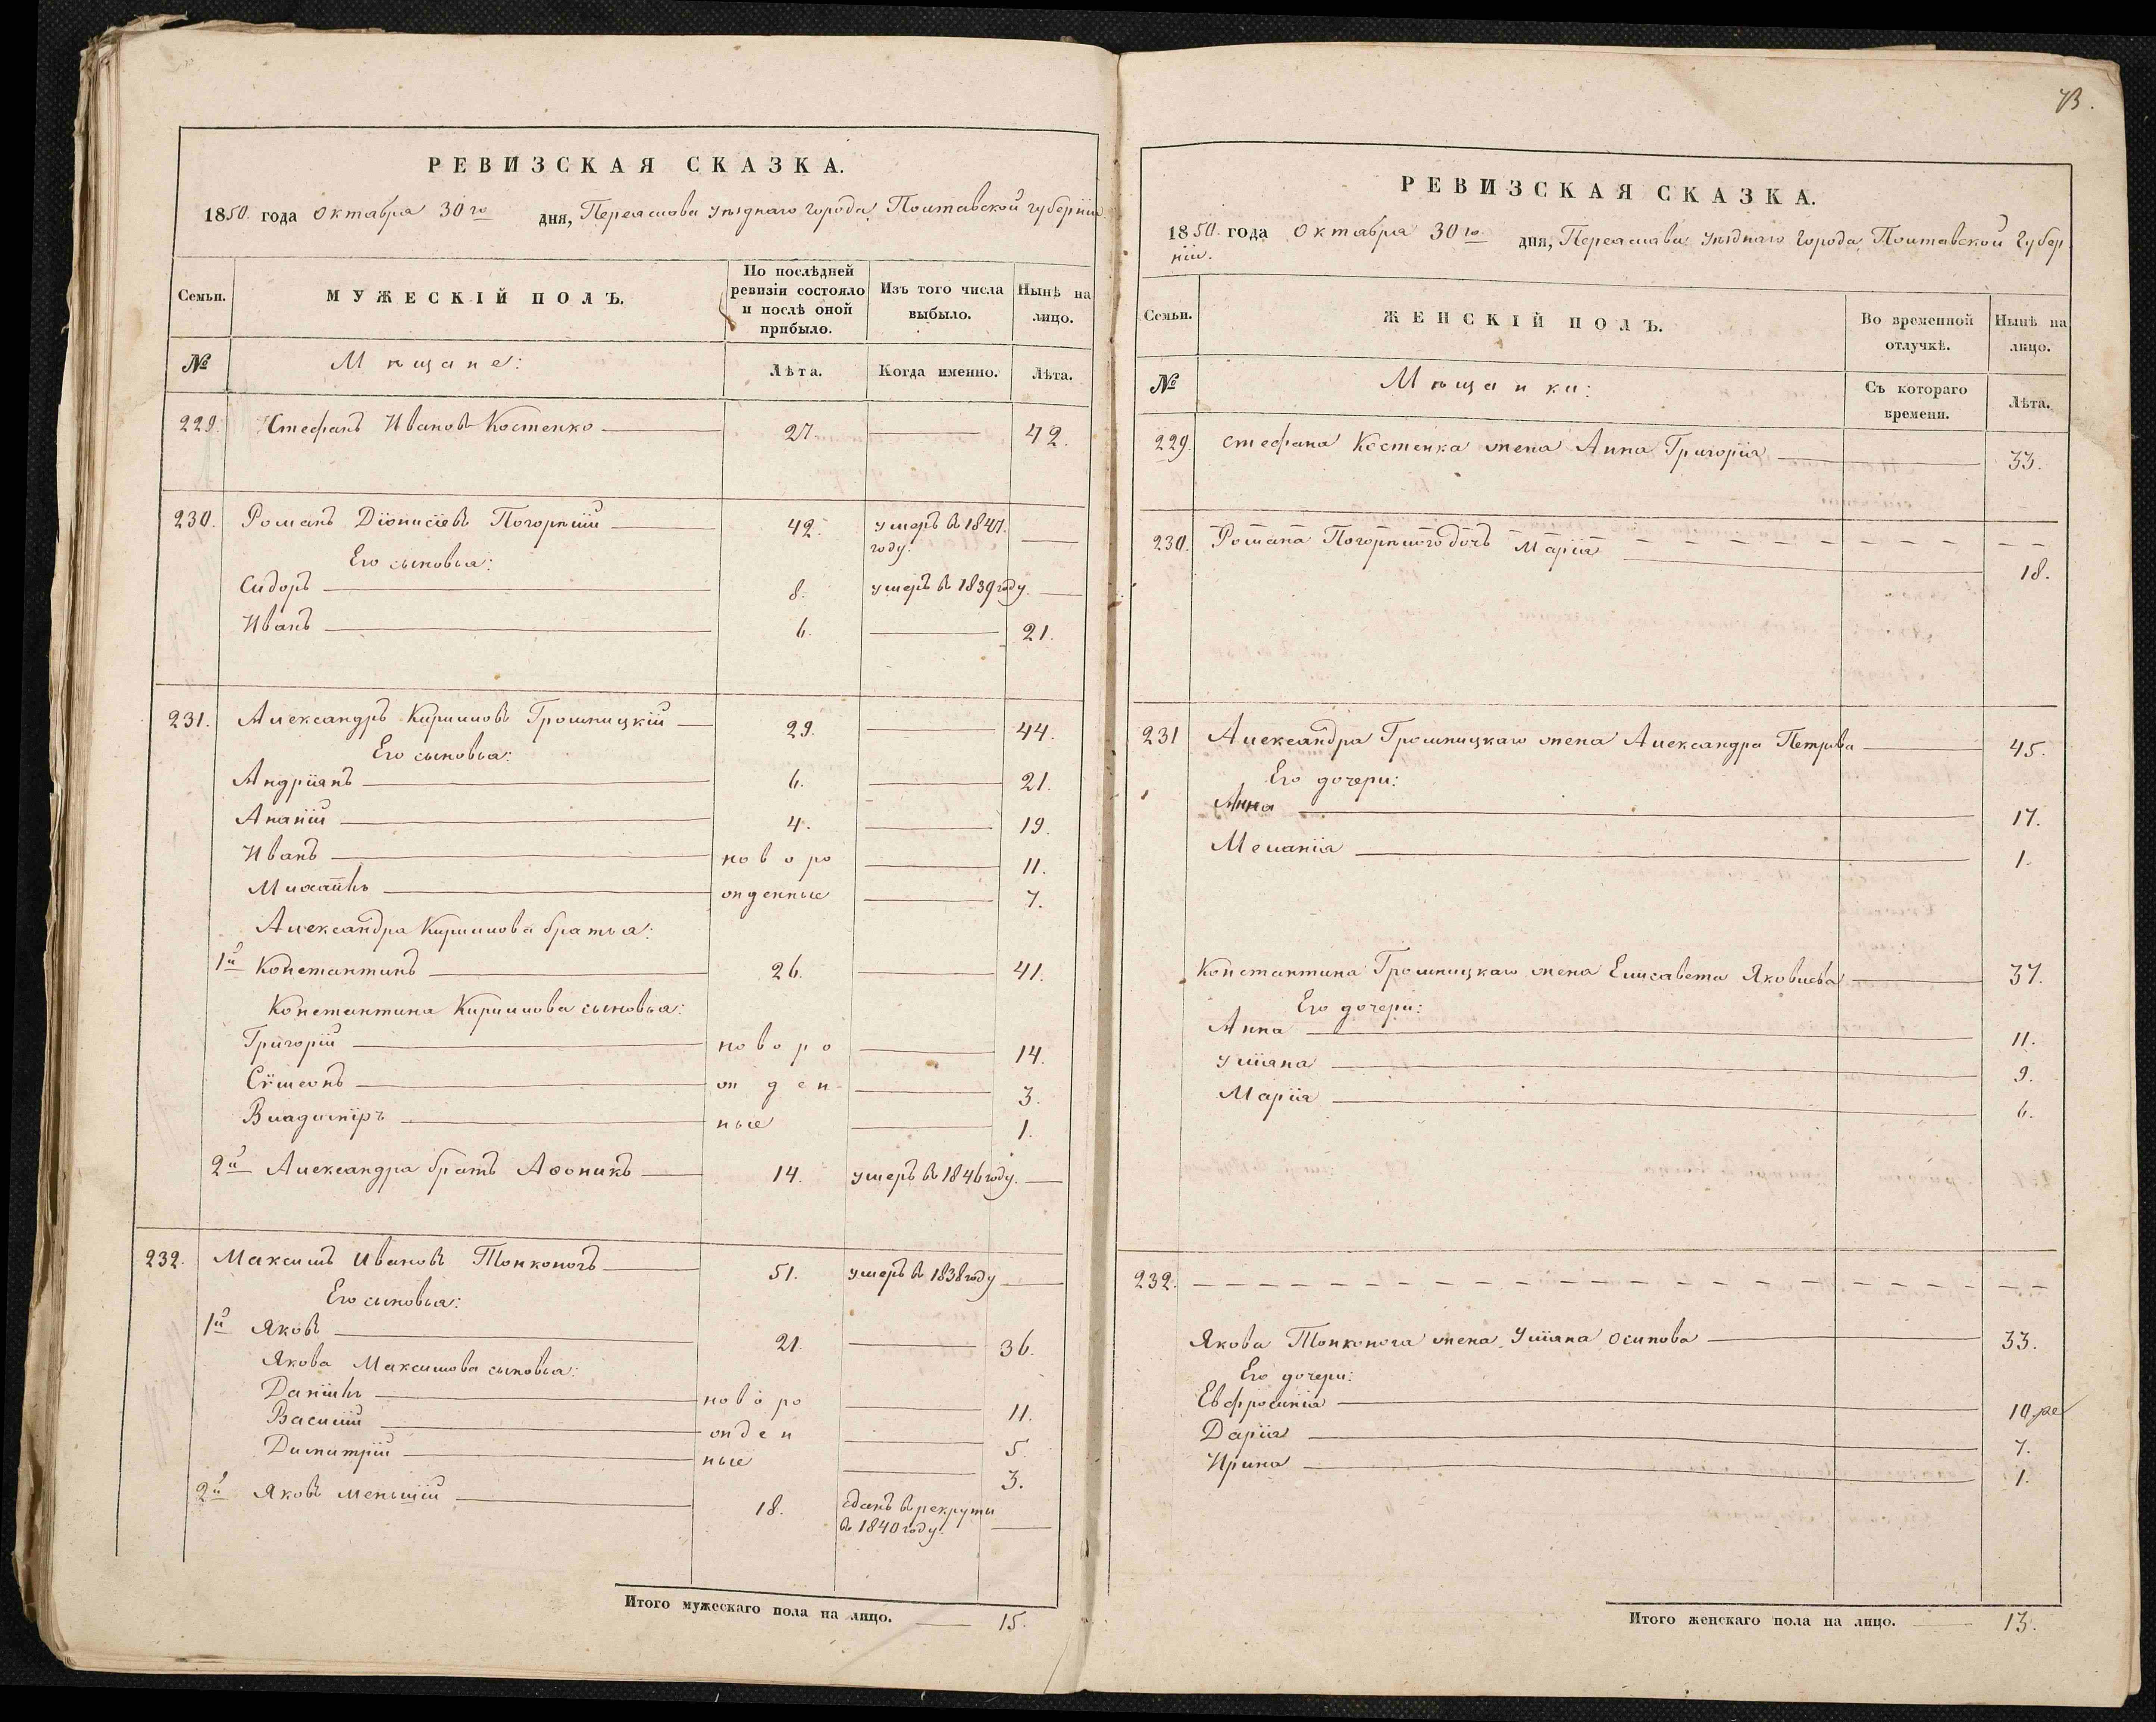 РЕВИЗСКАЯ СКАЗКА.
1850. года Октября 30го дня, Переяслова уѣзднаго города, Полтавской губерніи
Семьи. МУЖЕСКІЙ ПОЛЪ. По послѣдней ревизіи состояло и послѣ оной прибыло. Изъ того числа выбыло. Нынѣ на лицо.
№ Мѣщане: Лѣта. Когда именно. Лѣта.
229. Стефанъ Ивановъ Костенко 27. 42.
230. Романъ Діонисіевъ Погорѣлый 42. умеръ въ 1847. году.
Его сыновья:
Сидоръ 8. умеръ въ 1839 году.
Иванъ 6. 21.
231. Александръ Кирилловъ Грошицкій 29. 44.
Его сыновья:
Андріянъ 6. 21.
Ананій 4. 19.
Иванъ новоро 11.
Михаилъ жденные 7.
Александра Кириллова братья:
1й Константинъ 26. 41.
Константина Кириллова сыновья:
Григорій новоро 14.
Сѵмеонъ жден- 3.
Владиміръ ные 1.
2й Александра братъ Афоникъ 14. умеръ въ 1846 году.
232. Максимъ Ивановъ Тонконогъ 51. умеръ въ 1838 году
Его сыновья:
1й Яковъ 21. 36.
Якова Максимова сыновья:
Даніилъ новоро 11.
Василій жден 5.
Димитрій ные 3.
2й Яковъ меньшій 18. сданъ въ рекруты
въ 1840 году.
Итого мужескаго пола на лицо. 15.
73.
РЕВИЗСКАЯ СКАЗКА.
1850. года Октября 30го дня, Переяслава уѣзднаго города, Полтавской губер
ніи.
Семьи. ЖЕНСКІЙ ПОЛЪ. Во временной отлучкѣ. Нынѣ на лицо.
№ Мѣщанки: Съ котораго времени. Лѣта.
229. Стефана Костенка жена Анна Григорія 33.
230. Романа Погорѣлого дочь Марія 18.
231 Александра Грошицкаго жена Александра Петрова 45.
Его дочери:
Анна 17.
Меланія 1.
Константина Грошицкаго жена Елисавета Яковлева 37.
Его дочери:
Анна 11.
Уліяна 9.
Марія 6.
232.
Якова Тонконога жена Уліяна Осипова 33.
Его дочери:
Евфросинія 10
Дарія 7.
Ирина 1.
Итого женскаго пола на лицо. 13.